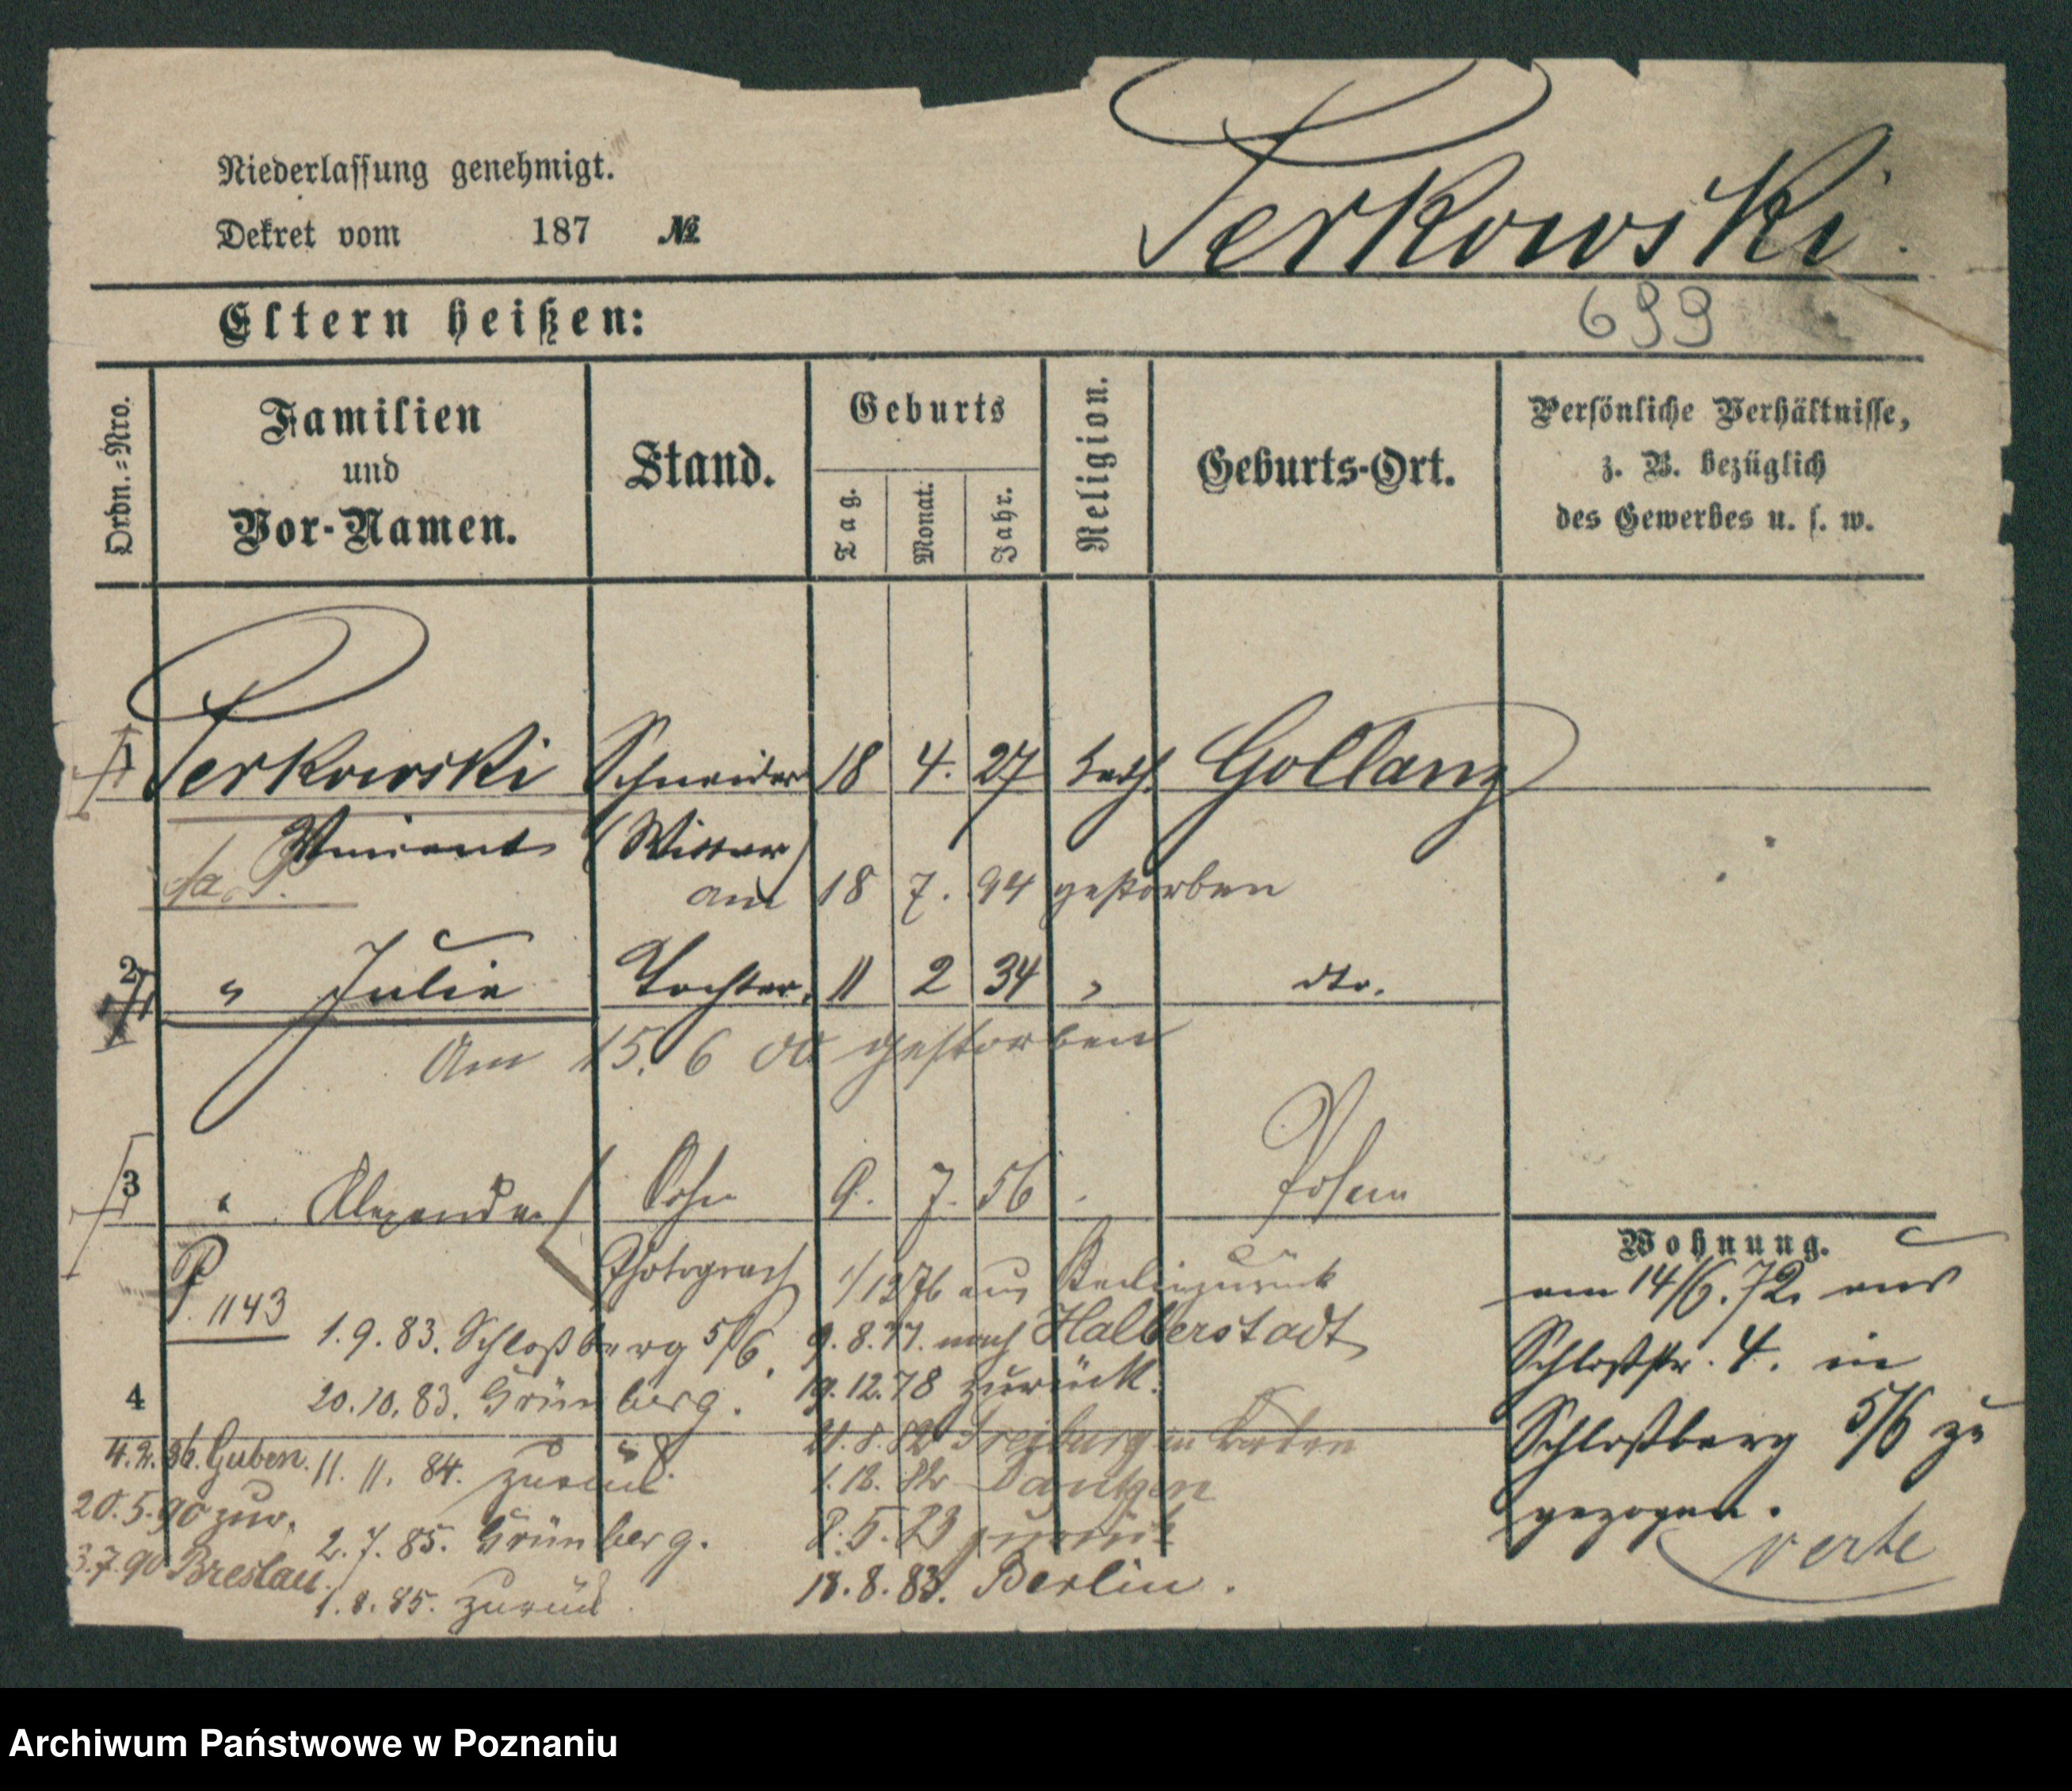 Niederlassung genehmigt.
Perkowski.
Dekret vom 187 №
Eltern heißen:
699
Ordn.=Nro.
Familien
und
Vor-Namen.
Stand.
Geburts
Tag.
Monat.
Jahr.
Religion.
Geburts-Ort.
Persönliche Verhältnisse,
z. B. bezüglich
des Gewerbes u. s. w.
1 Perkowski Schneider 18 4. 27 kath. Gollanz
(Wittwer)
am 18 7. 94 gestorben
2 " Julie Tochter. 11 2 34 " dto.
Am 15. 6 00 gestorben
3 " Alexander Sohn 9. 7. 56 Posen
Photograph 1/12 76 aus Berlin zurück
P. 1143
1.9.83. Schloßberg 5/6. 9.8.77. nach Halberstadt
4 20.10.83. Grünberg. 19.12.78 zurück.
4.2.86. Guben. 11. 11. 84. zurück. 21.8.82 Freiburg in Baden
20.5.90 zur.
2.7.85. Grünberg. zurück
3.7.90 Breslau. 1.8.85. zurück. 18.8.83. Berlin.
Wohnung.
am 14/6.72. aus
Schloßstr. 4. in
Schloßberg 5/6 zu
gezogen.
verte
Archiwum Państwowe w Poznaniu